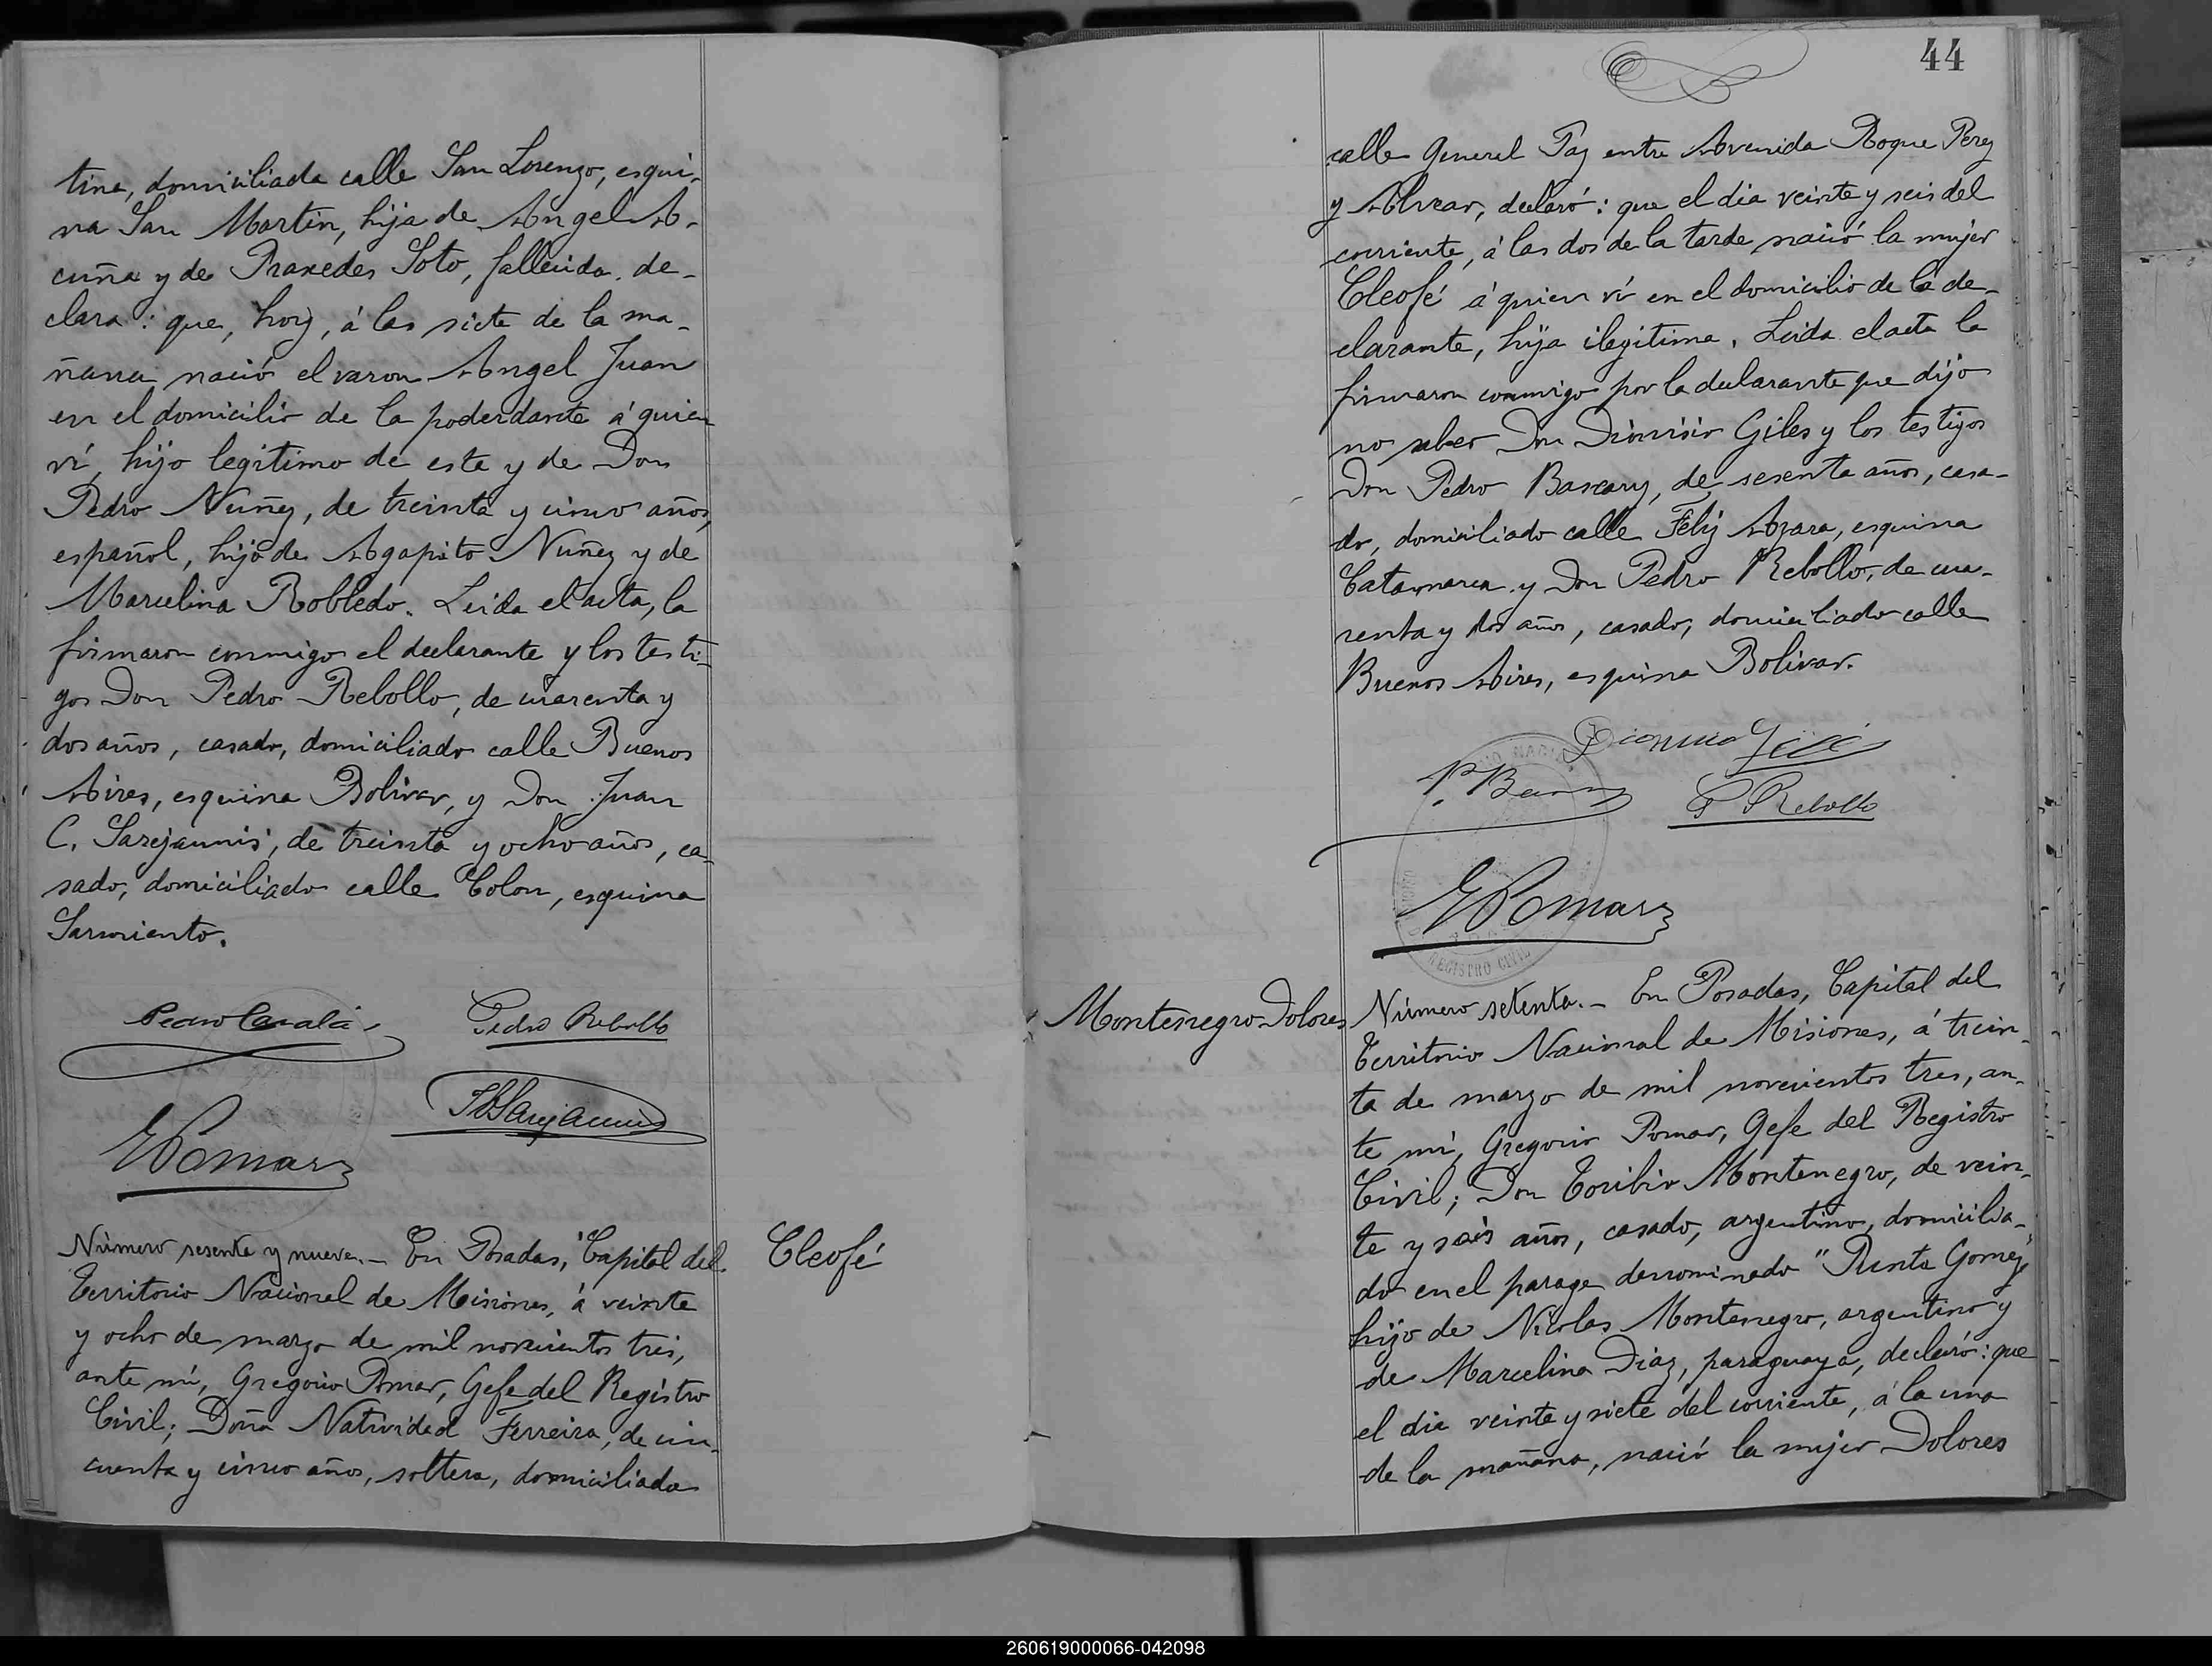 tina, domiciliada calle San Lorenzo, esqui-
na San Martin, hija de Angel A-
cuña y de Praxedes Soto, fallecida, de-
clara: que, hoy, á las siete de la ma-
ñana nació el varon Angel Juan
en el domicilio de la poderdante á quien
ví, hijo legítimo de esta y de Don
Pedro Nuñez, de treinta y cinco años,
español, hijo de Agapito Nuñez y de
Marcelina Robledo. Leida el acta, la
firmaron conmigo el declarante y los testi-
gos Don Pedro Rebollo, de cuarenta y
dos años, casado, domiciliado calle Buenos
Aires, esquina Bolivar, y Don Juan
C. Sarejannis, de treinta y ocho años, ca-
sado, domiciliado calle Colon, esquina
Sarmiento.
Pedro
Pedro Rebollo
GPomar
Número sesenta y nueve.- En Posadas, Capital del
Territorio Nacional de Misiones, á veinte
y ocho de marzo de mil novecientos tres,
ante mí, Gregorio Pomar, Gefe del Registro
Civil; Doña Natividad Ferreira, de cin-
cuenta y cinco años, soltera, domiciliada
Cleofé
44
calle General Paz entre Avenida Roque Perez
y Alvear, declaró: que el dia veinte y seis del
corriente, á las dos de la tarde nació la mujer
Cleofé á quien ví en el domicilio de la de-
clarante, hija ilegitima. Leida el acta la
firmaron conmigo por la declarante que dijo
no saber Don Dionisio Giles y los testigos
Don Pedro Bascary, de sesenta años, casa-
do, domiciliado calle Feliz Azara, esquina
Catamarca y Don Pedro Rebollo, de cua-
renta y dos años, casado, domiciliado calle
Buenos Aires, esquina Bolivar.
P. Rebollo
GPomar
REGISTRO CIVIL
Montenegro Dolores
Número setenta.- En Posadas, Capital del
Territorio Nacional de Misiones, á trein-
ta de marzo de mil novecientos tres, an-
te mí, Gregorio Pomar, Gefe del Registro
Civil; Don Toribio Montenegro, de vein-
te y seis años, casado, argentino, domicilia-
do en el parage denominado "Punta Gomez",
hijo de Nicolas Montenegro, argentino y
de Marcelina Diaz, paraguaya, declaró: que
el dia veinte y siete del corriente, á la una
de la mañana, nació la mujer Dolores
260619000066-042098